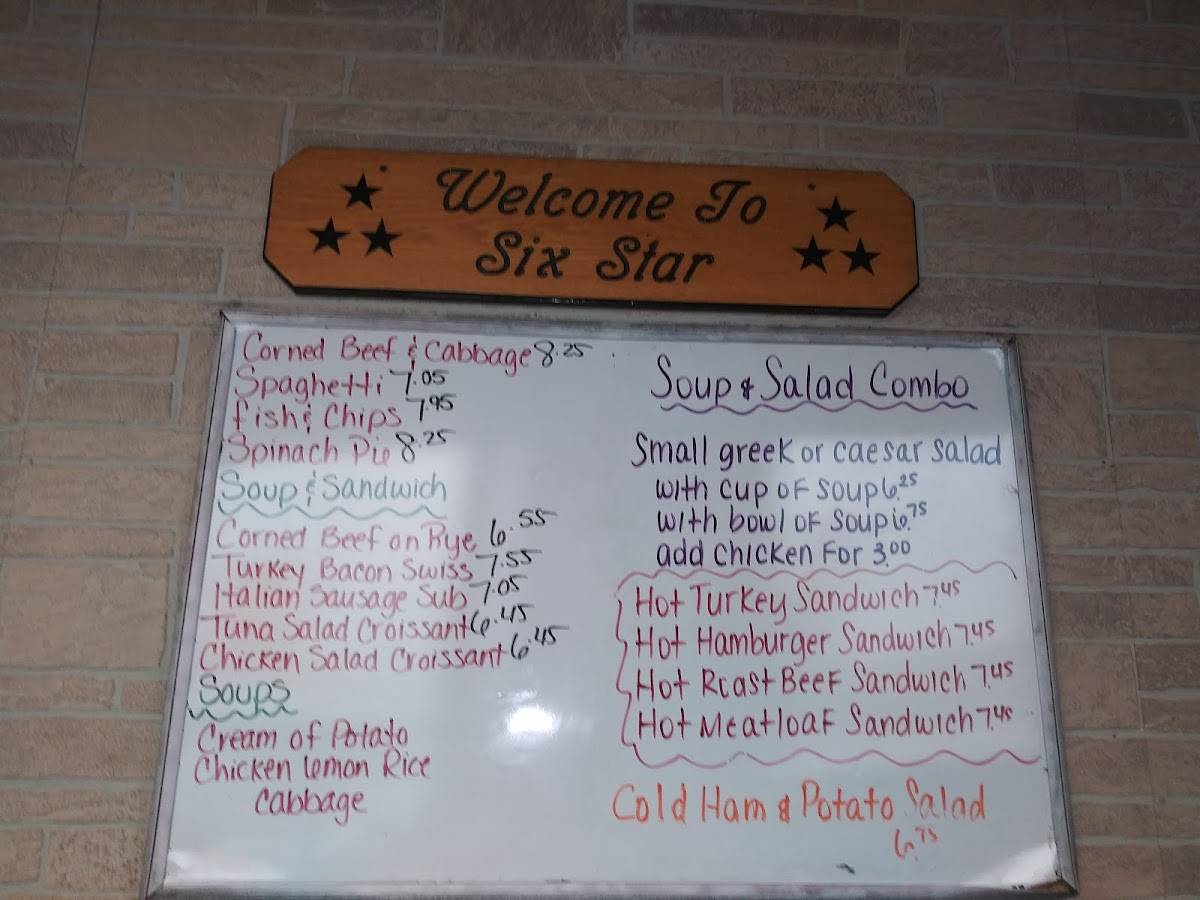 Welcome To
Six Star
Corned Beef & Cabbage 8.25
Spaghetti 7.05
fish & Chips 7.95
Spinach Pie 8.25
Soup & Sandwich
Corned Beef on Rye 6.55
Turkey Bacon Swiss 7.55
Italian Sausage Sub 7.05
Tuna Salad Croissant 6.45
Chicken Salad Croissant 6.45
Soups
Cream of Potato
Chicken lemon Rice
Cabbage
Soup & Salad Combo
Small greek or caesar salad
with cup of soup 6.25
with bowl of soup 6.75
add chicken for 3.00
Hot Turkey Sandwich 7.45
Hot Hamburger Sandwich 7.45
Hot Roast Beef Sandwich 7.45
Hot Meatloaf Sandwich 7.45
Cold Ham & Potato Salad
6.75